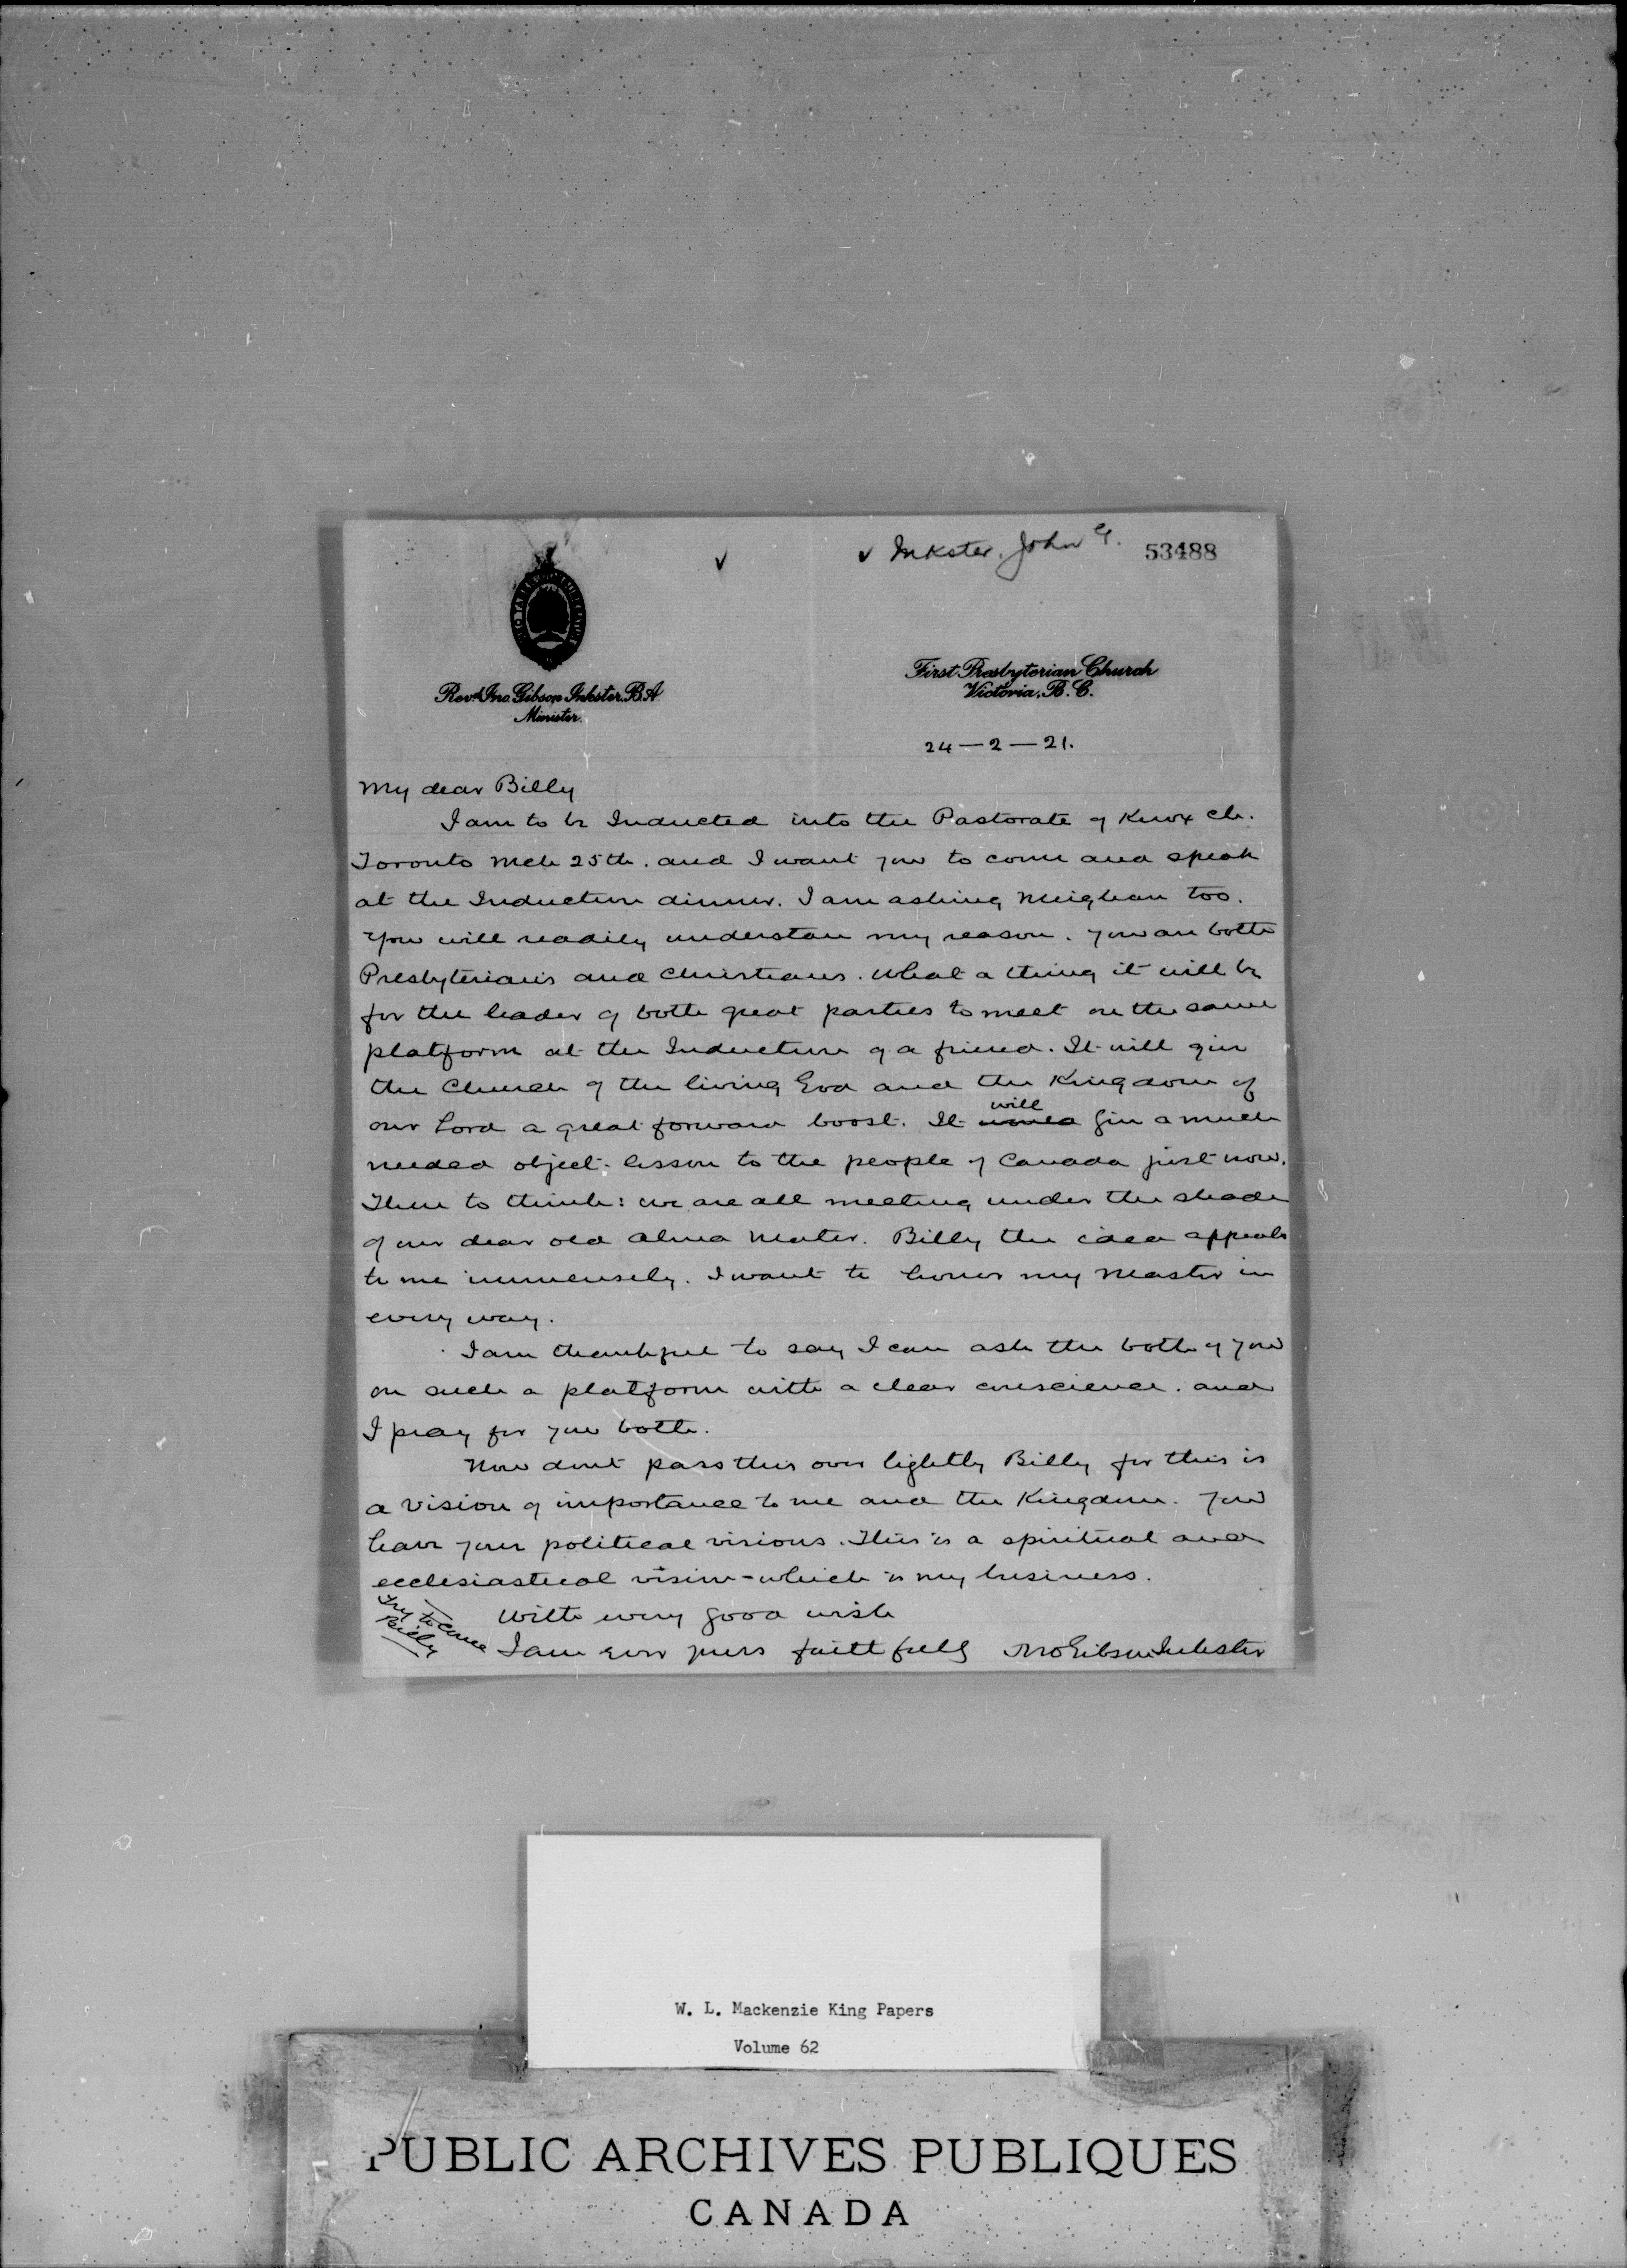 ✓ ✓ Inkster, John G. 53488
Revd. Jno. Gibson Inkster. B.A
Minister.
First Presbyterian Church
Victoria, B.C.
24—2—21.
My dear Billy
I am to be Inducted into the Pastorate of Knox Ch.
Toronto Mch 25th. and I want you to come and speak
at the Induction dinner. I am asking Meighan too.
You will readily understan my reason. You are both
Presbyterians and Christians. What a thing it will be
for the leader of both great parties to meet on the same
platform at the Induction of a friend. It will give
the Church of the living God and the Kingdom of
our Lord a great forward boost. It would will give a much
needed object-lesson to the people of Canada just now.
Then to think: we are all meeting under the shade
of our dear old Alma Mater. Billy the idea appeals
to me immensely. I want to honor my Master in
every way.
I am thankful to say I can ask the both of you
on such a platform with a clear conscience. and
I pray for you both.
Now dont pass this over lightly Billy for this is
a vision of importance to me and the Kingdom. You
have your political visions. This is a spiritual and
ecclesiastical vision - which is my business.
With every good wish
I am ever yours faithfully Jno Gibson Inkster
Try to come
Billy
W. L. Mackenzie King Papers
Volume 62
PUBLIC ARCHIVES PUBLIQUES
CANADA